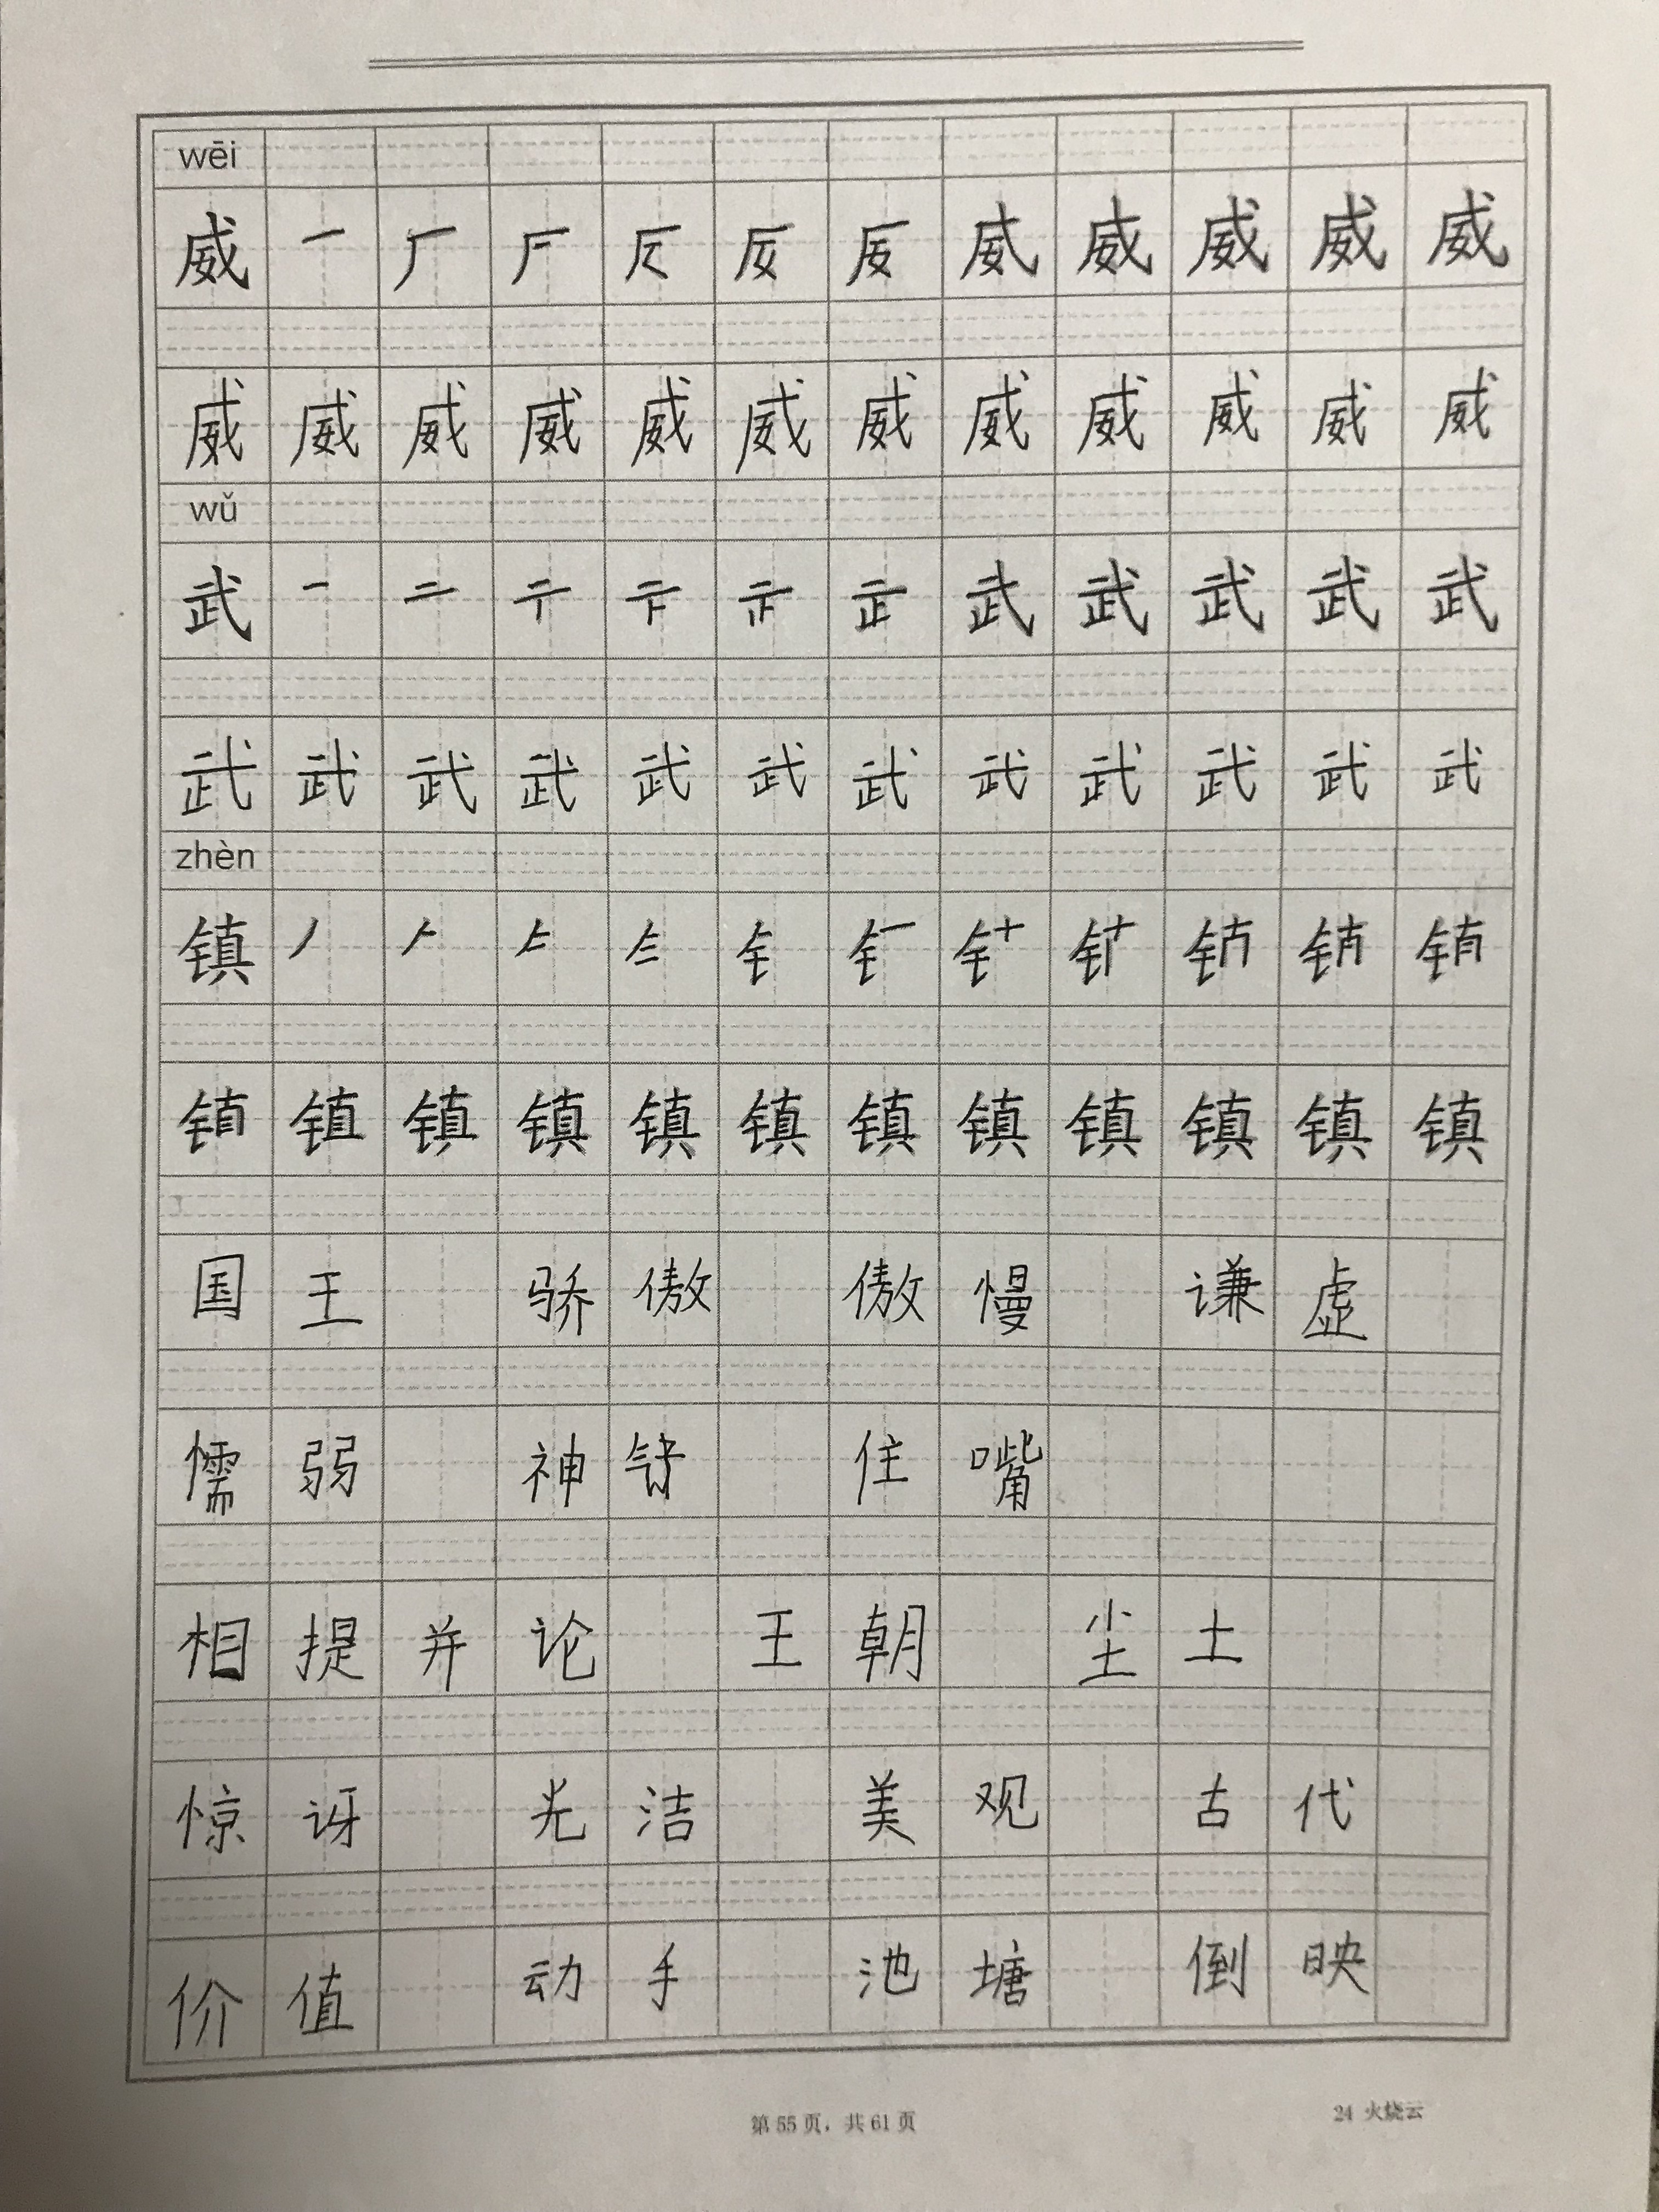 wēi
威 一 厂 威 威 威
威 威 威 威 威 威 威 威 威 威 威 威
wǔ
武 一 二 武 武 武 武
武 武 武 武 武 武 武 武 武 武 武 武
zhèn
镇 丿
镇 镇 镇 镇 镇 镇 镇 镇 镇
国王 骄傲 傲慢 谦虚
懦弱 神 住嘴
相提并论 王朝 尘土
惊讶 光洁 美观 古代
价值 动手 池塘 倒映
第 55 页，共 61 页
24 火烧云